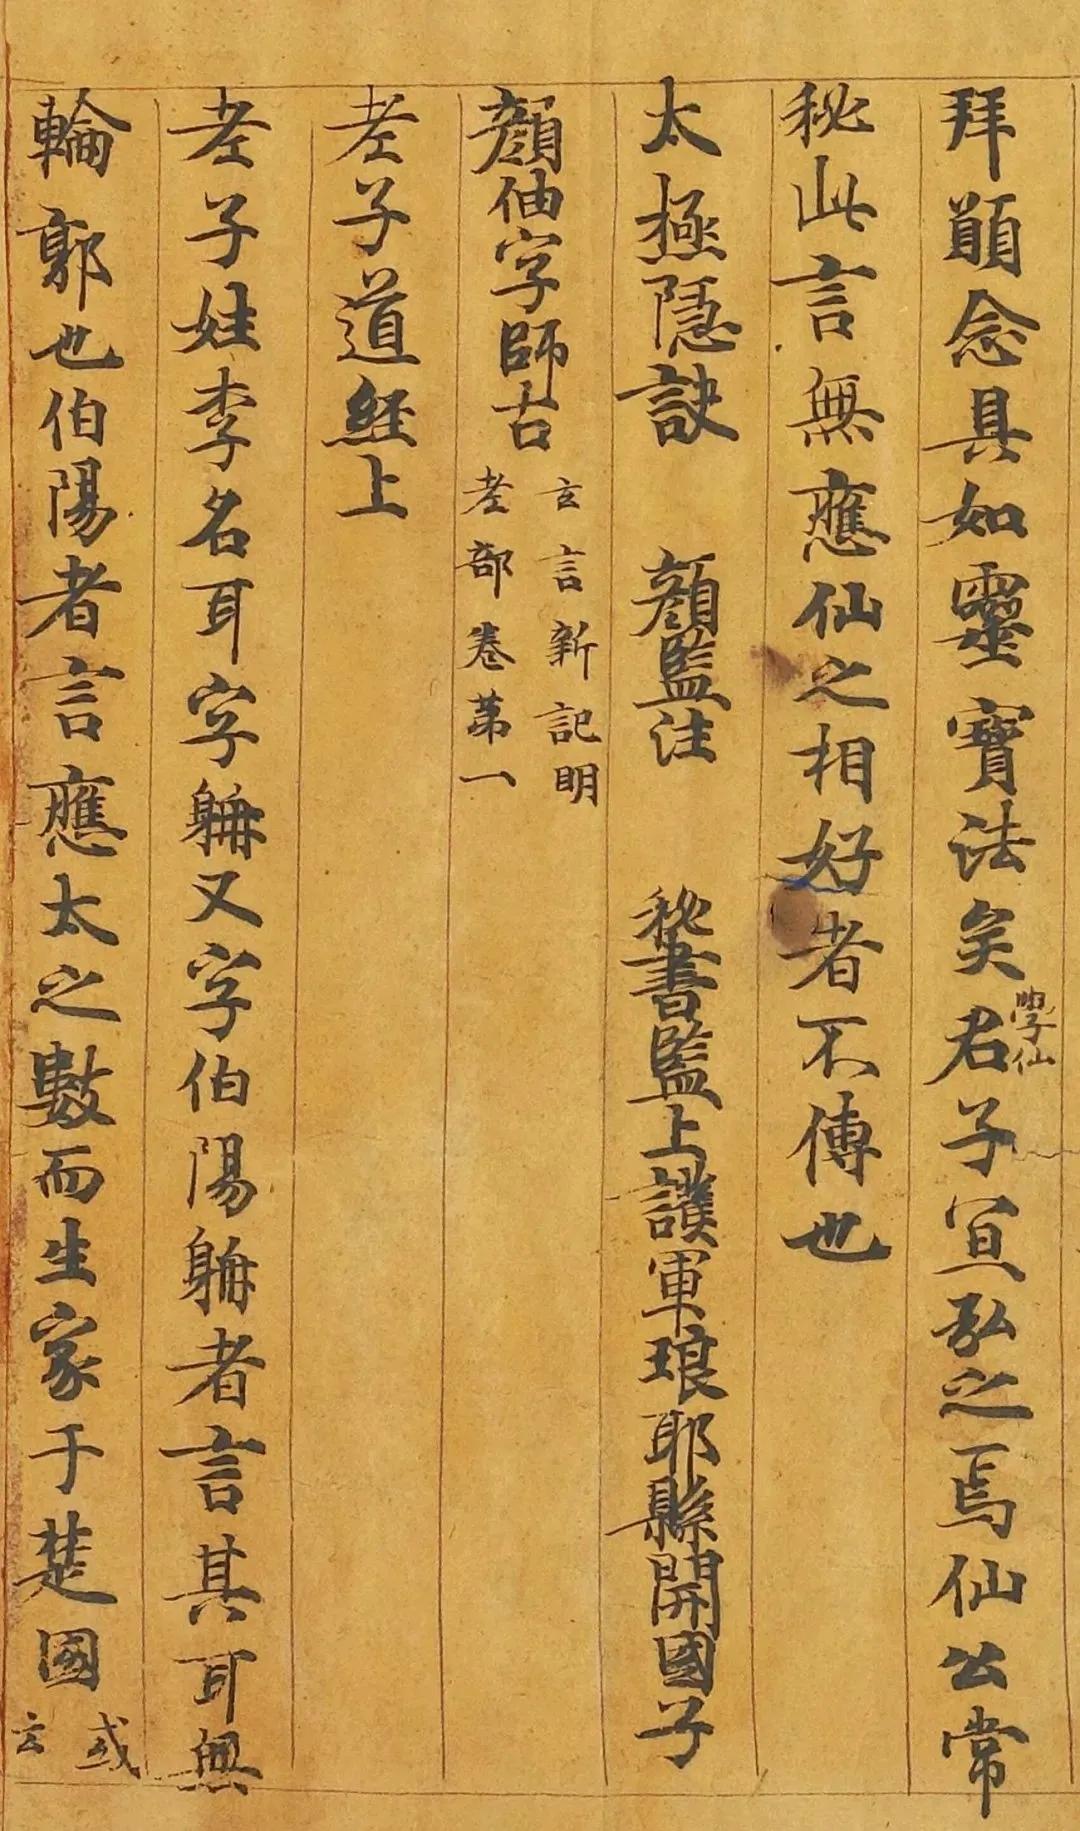 拜願念具如靈寶法矣君子宜弘之焉仙公常
學仙
秘此言無應仙之相好者不傳也
太極隱訣 顏監注 秘書監上護軍琅耶縣開國子
顏伷字師古
玄言新記明
老部卷苐一
老子道經上
老子姓李名耳字聃又字伯陽聃者言其耳無
輪郭也伯陽者言應太之數而生家于楚國
或
云